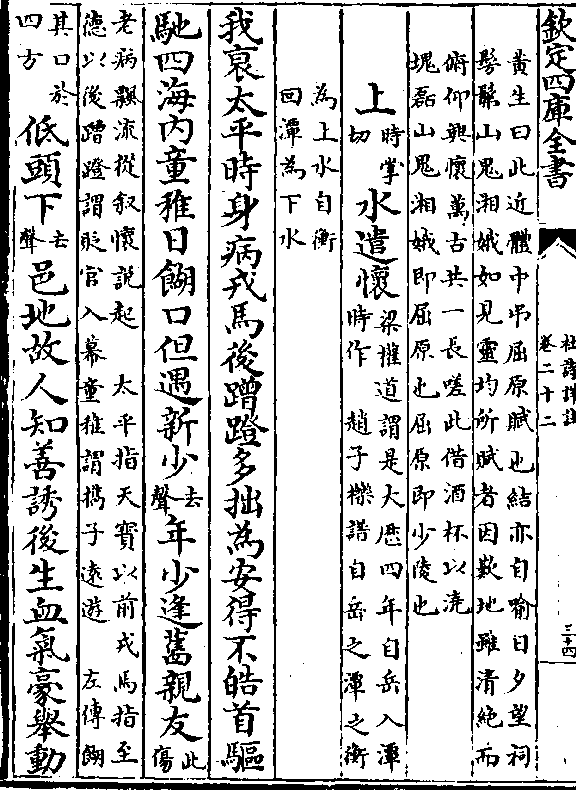 欽定四庫全書
杜詩詳註
卷二十二
三十四
黃生曰此近體中弔屈原賦也結亦自喻日夕望祠
髣髴山鬼湘娥如見靈均所賦者因歎地雖清絶而
俯仰興懷萬古共一長嗟此借酒杯以澆
塊磊山鬼湘娥即屈原也屈原即少陵也
上
時掌
切
水遣懷
梁權道謂是大厯四年自岳入潭
時作　趙子櫟譜自岳之潭之衡
為上水自衡
回潭為下水
我衰太平時身病戎馬後蹭蹬多拙為安得不皓首驅
馳四海內童稚日餬口但遇新少去聲年少逢舊親友此傷
老病飄流從叙懷說起　太平指天寶以前戎馬指至
德以後蹭蹬謂貶官入幕童稚謂携子遠遊　左傳餬
其口於
四方
低頭下去聲邑地故人知善誘後生血氣豪舉動